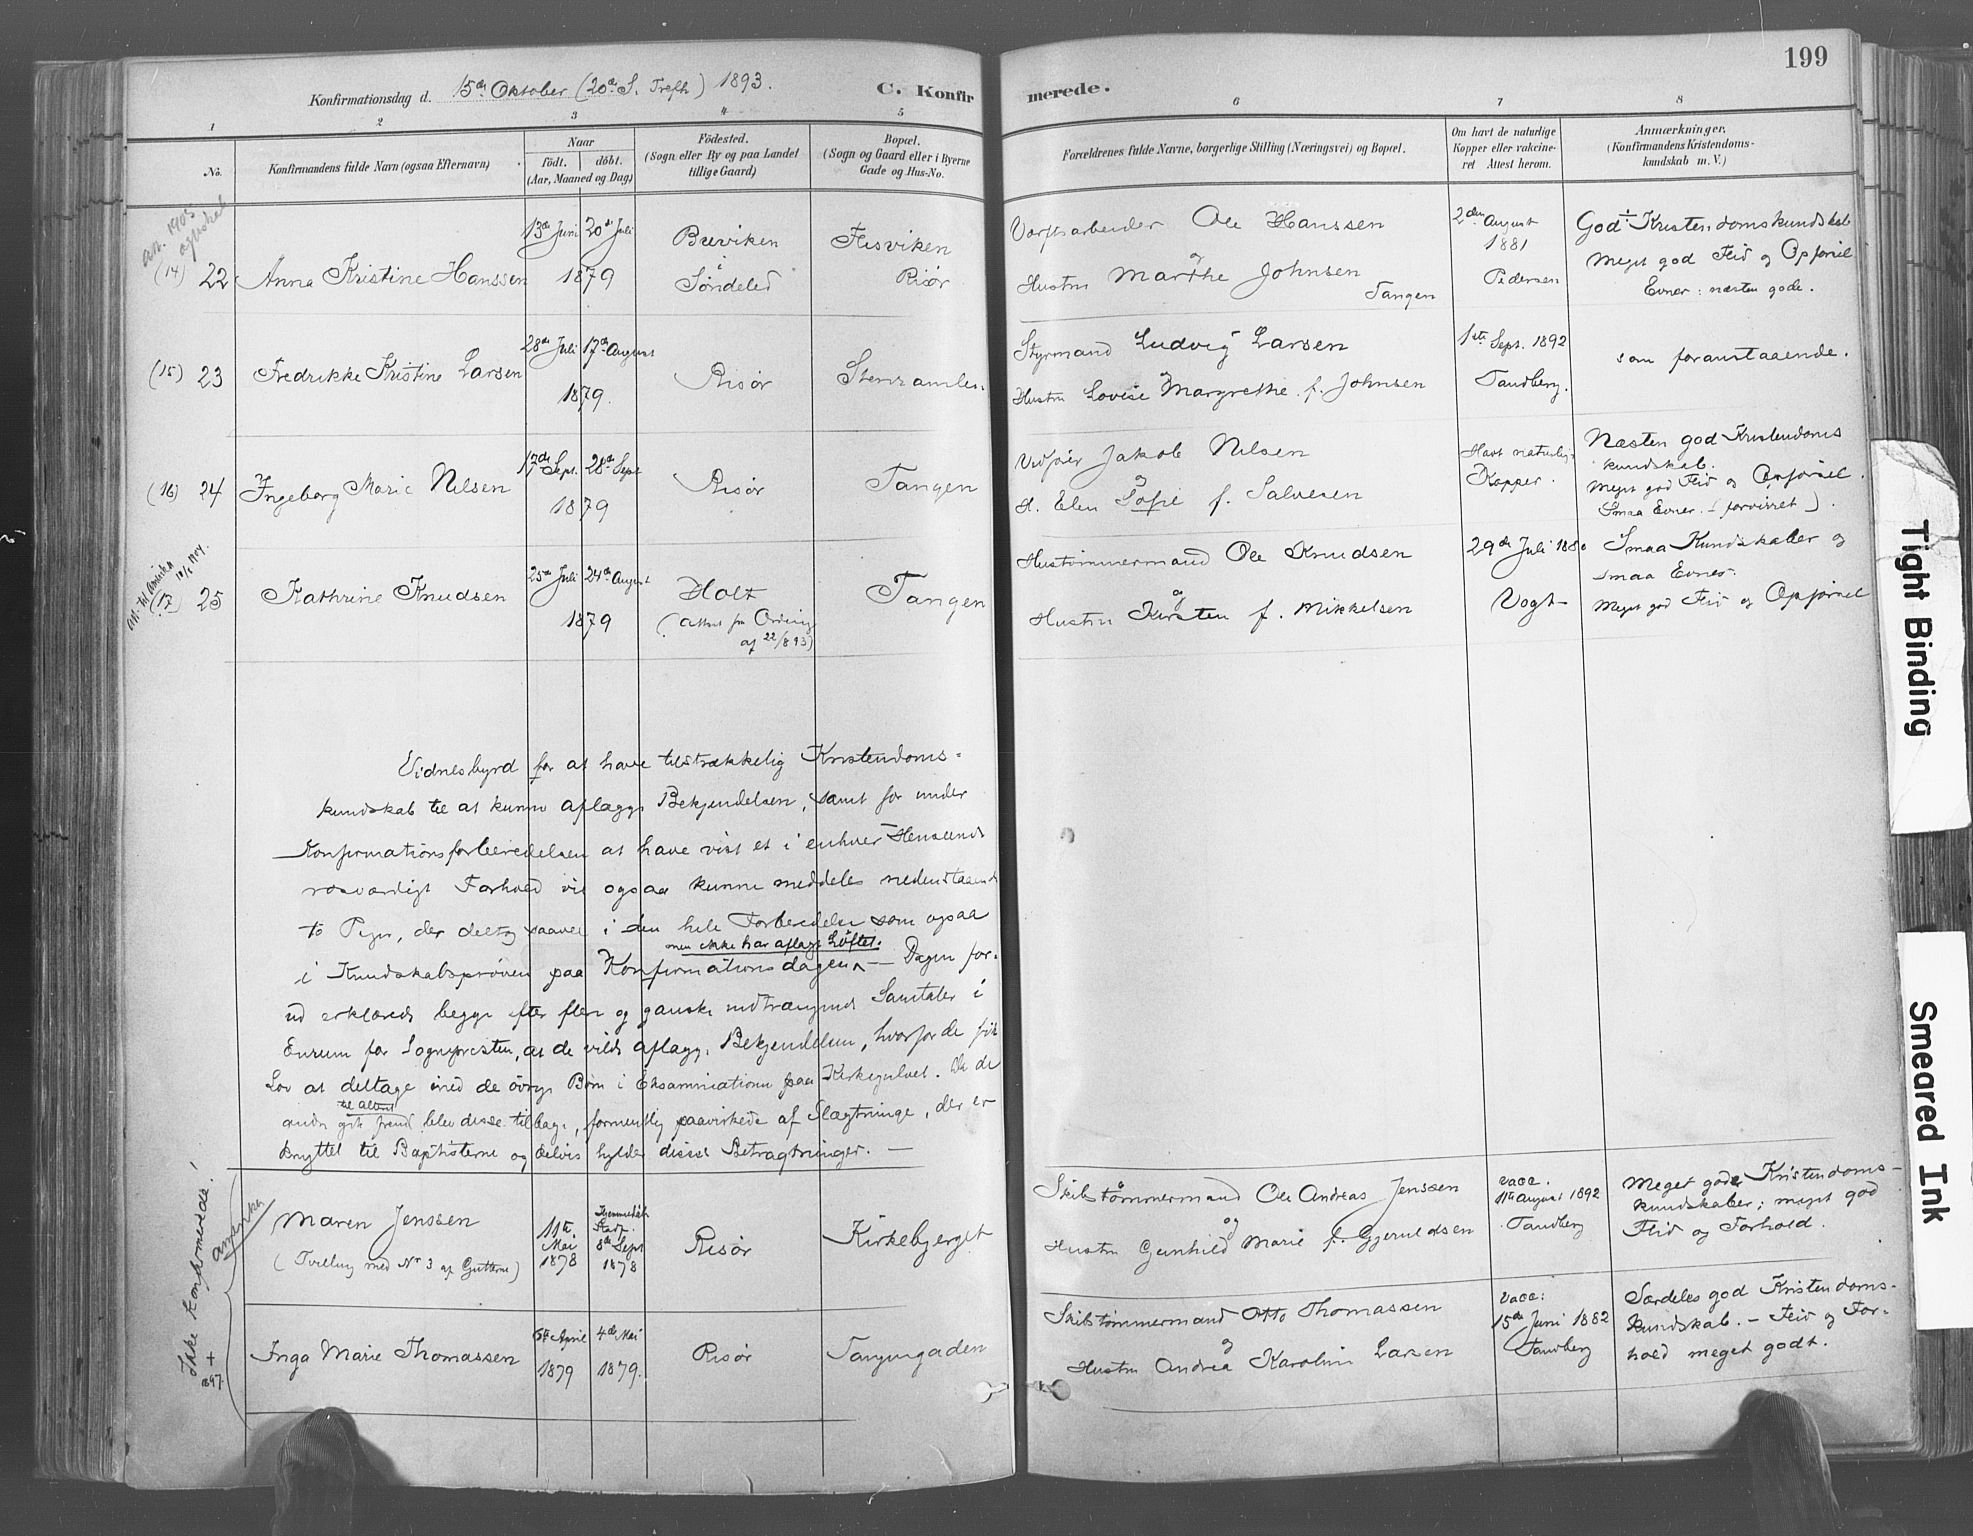 199
Konfirmationsdag d. 15de Oktober (20de S. Trefh) 1893.
C. Konfirmerede.
1 2 3 4 5 6 7 8
No.
Konfirmandens fulde Navn (ogsaa Efternavn)
Naar
født. døbt.
(Aar, Maaned og Dag)
Fødested.
(Sogn eller By og paa Landet
tillige Gaard)
Bopæl.
(Sogn og Gaard eller i Byerne
Gade og Hus-No.
Forældrenes fulde Navne, borgerlige Stilling (Næringsvei) og Bopæl.
Om havt de naturlige
Kopper eller vakcine-
ret Attest herom.
Anmærkninger.
(Konfirmandens Kristendoms-
kundskab m. V.)
(14) 22 Anna Kristine Hanssen
13de Juni 20de Juli
1879
Buviken
i
Søndeled
Flisviken
Risør
Værftsarbeider Ole Hanssen
og
Hustru Marthe Johnsen
Tangen
2den August
1881
Pedersen
God ÷ Kristendomskundskab
Meget god Flid og Opførsel
Evner: næsten gode.
(15) 23 Fredrikke Kristine Larsen
28de Juli 17de August
1879.
Risør
Stenramlen
Styrmand Ludvig Larsen
og
Hustru Lovise Margrethe f. Johnsen
1ste Sept. 1892
Tandberg.
som foranstaaende.
(16) 24 Ingeborg Marie Nilsen
17de Sept. 28de Sept
1879
Risør
Tangen
Vedfører Jakob Nilsen
og
H. Elen Sofie f. Salvesen
Havt naturlige
Kopper.
Næsten god Kristendoms
kundskab.
Meget god Flid og Opførsel.
Smaa Evner. - (forvirret).
Att. til Amerika 18/2 1904.
(17) 25 Kathrine Knudsen
25de Juli 24de August
1879
Holt
(Attest fra
af 22/8 93)
Tangen
Hustømmermand Ole Knudsen
og
Hustru Kirsten f. Mikkelsen
29de Juli 1880
Vogt
Smaa Kundskaber og
smaa Evner.
Meget god Flid og Opførsel
Vidnesbyrd for at have tilstrækkelig Kristendoms-
kundskab til at kunne aflægge Bekjendelsen, samt for under
Konfirmationsforberedelsen at have vist et i enhver Henseende
rosværdigt Forhold vil ogsaa kunne meddeles nedenstaaende
to Piger, der deltog saavel i den hele Forberedelse som ogsaa
men ikke har aflagt Løftet.
i Kundskabsprøven paa Konfirmationsdagen — Dagen for-
ud erklærede begge efter flere og ganske indtrængende Samtaler i
Enrum for Sognepresten, at de vilde aflægge Bekjendelsen, hvorfor de fik
Lov at deltage med de øvrige Børn i Eksaminationen paa Kirkegulvet. Da de
til Alteret
andre gik frem blev disse tilbage, formentlig paavirkede af Slægtninge, der er
knyttet til Baptisterne og delvis hylder disses Betragtninger. —
Ikke konfirmerede!
Amerika
Maren Jenssen
(Tvilling med Nr 3 af Gutterne)
11te
Mai
1878
Hjemmedøbt
Stadf.
8de Sept
1878
Risør
Kirkebjerget
Skibstømmermand Ole Andreas Jenssen
og
Hustru Gunhild Marie f. Gjeruldsen
vacc.
11te August 1892
Tandberg
Meget gode Kristendoms-
kundskaber; meget god
Flid og Forhold.
Inga Marie Thomassen
6te April 4de Mai
1879 1879.
Risør
Tangengaden
Skibstømmermand Otto Thomassen
og
Hustru Andrea Karoline Larsen
vacc:
15de Juni 1882
Tandberg
Særdeles god Kristendoms-
kundskab. - Flid og For-
hold meget godt.
Tight Binding
Smeared Ink